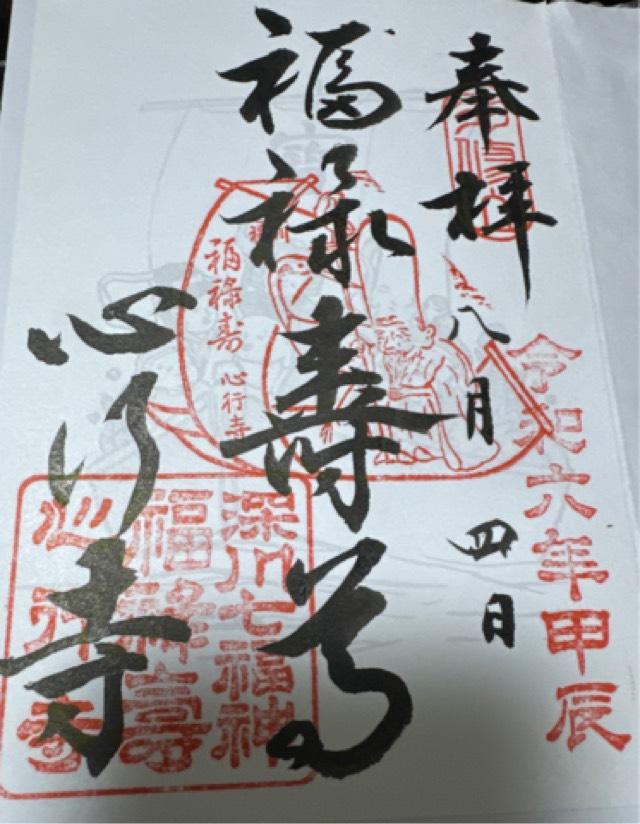 奉拝
令和六年甲辰
八月四日
福禄寿尊
福禄寿
心行寺
心行寺
深川七福神
福禄壽
心行寺